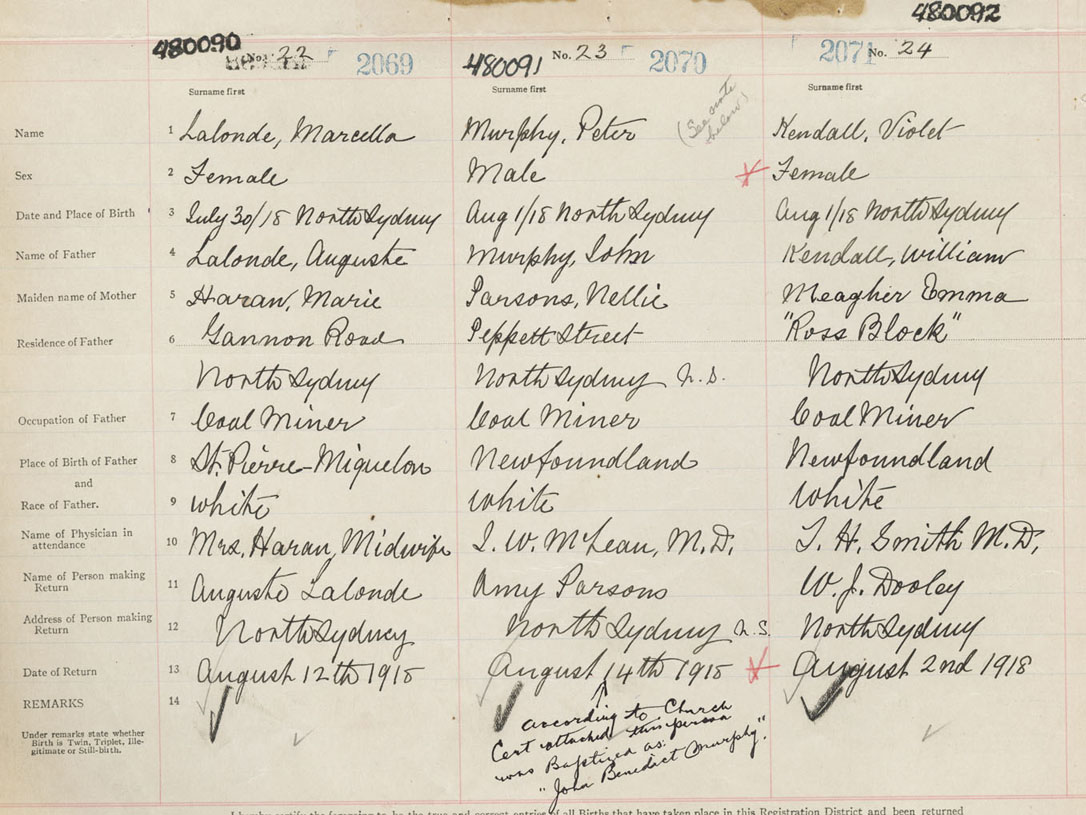 480092
480090 No. 22 2069 480091 No. 23 2070 2071 No. 24
Surname first Surname first Surname first
(See note below)
Name 1 Lalonde, Marcella Murphy, Peter Kendall, Violet
Sex 2 Female Male Female
Date and Place of Birth 3 July 30/18 North Sydney Aug 1/18 North Sydney Aug 1/18 North Sydney
Name of Father 4 Lalonde, Auguste Murphy, John Kendall, William
Maiden name of Mother 5 Haran, Marie Parsons, Nellie Meagher Emma
Residence of Father 6 Gannon Road Peppett Street "Ross Block"
North Sydney North Sydney N.S. North Sydney
Occupation of Father 7 Coal Miner Coal Miner Coal Miner
Place of Birth of Father 8 St. Pierre-Miquelon Newfoundland Newfoundland
and
Race of Father. 9 White White White
Name of Physician in attendance 10 Mrs. Haran, Midwife J. W. McLean, M.D. T. H. Smith M.D.
Name of Person making Return 11 Auguste Lalonde Amy Parsons W. J. Dooley
Address of Person making Return 12 North Sydney North Sydney N.S. North Sydney
Date of Return 13 August 12th 1918 August 14th 1918 August 2nd 1918
REMARKS 14
Under remarks state whether
Birth is Twin, Triplet, Ille-
gitimate or Still-birth.
according to Church
Cert attached this person
was Baptized as:
"John Benedict Murphy."
I hereby certify the foregoing to be the true and correct entries of all Births that have taken place in this Registration District and been returned